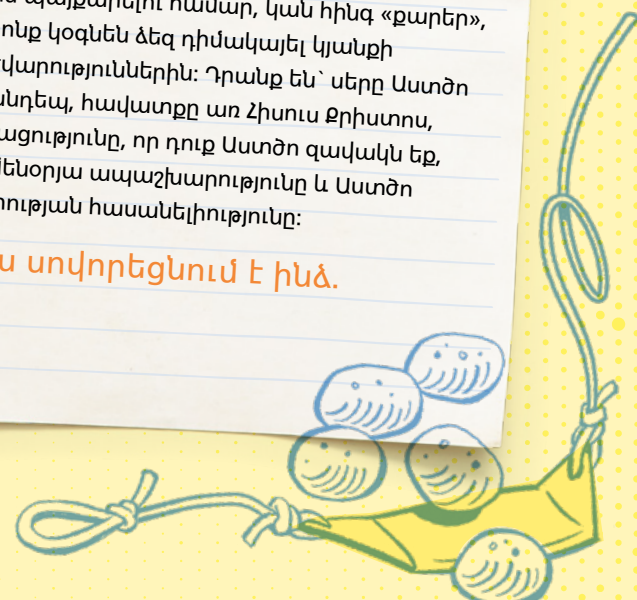 պայքարելու համար, կան հինգ «քարեր»,
րոնք կօգնեն ձեզ դիմակայել կյանքի
վարություններին: Դրանք են՝ սերը Աստծո
անդեպ, հավատքը առ Հիսուս Քրիստոս,
ացությունը, որ դուք Աստծո զավակն եք,
մենօրյա ապաշխարությունը և Աստծո
րության հասանելիությունը:
սովորեցնում է ինձ.